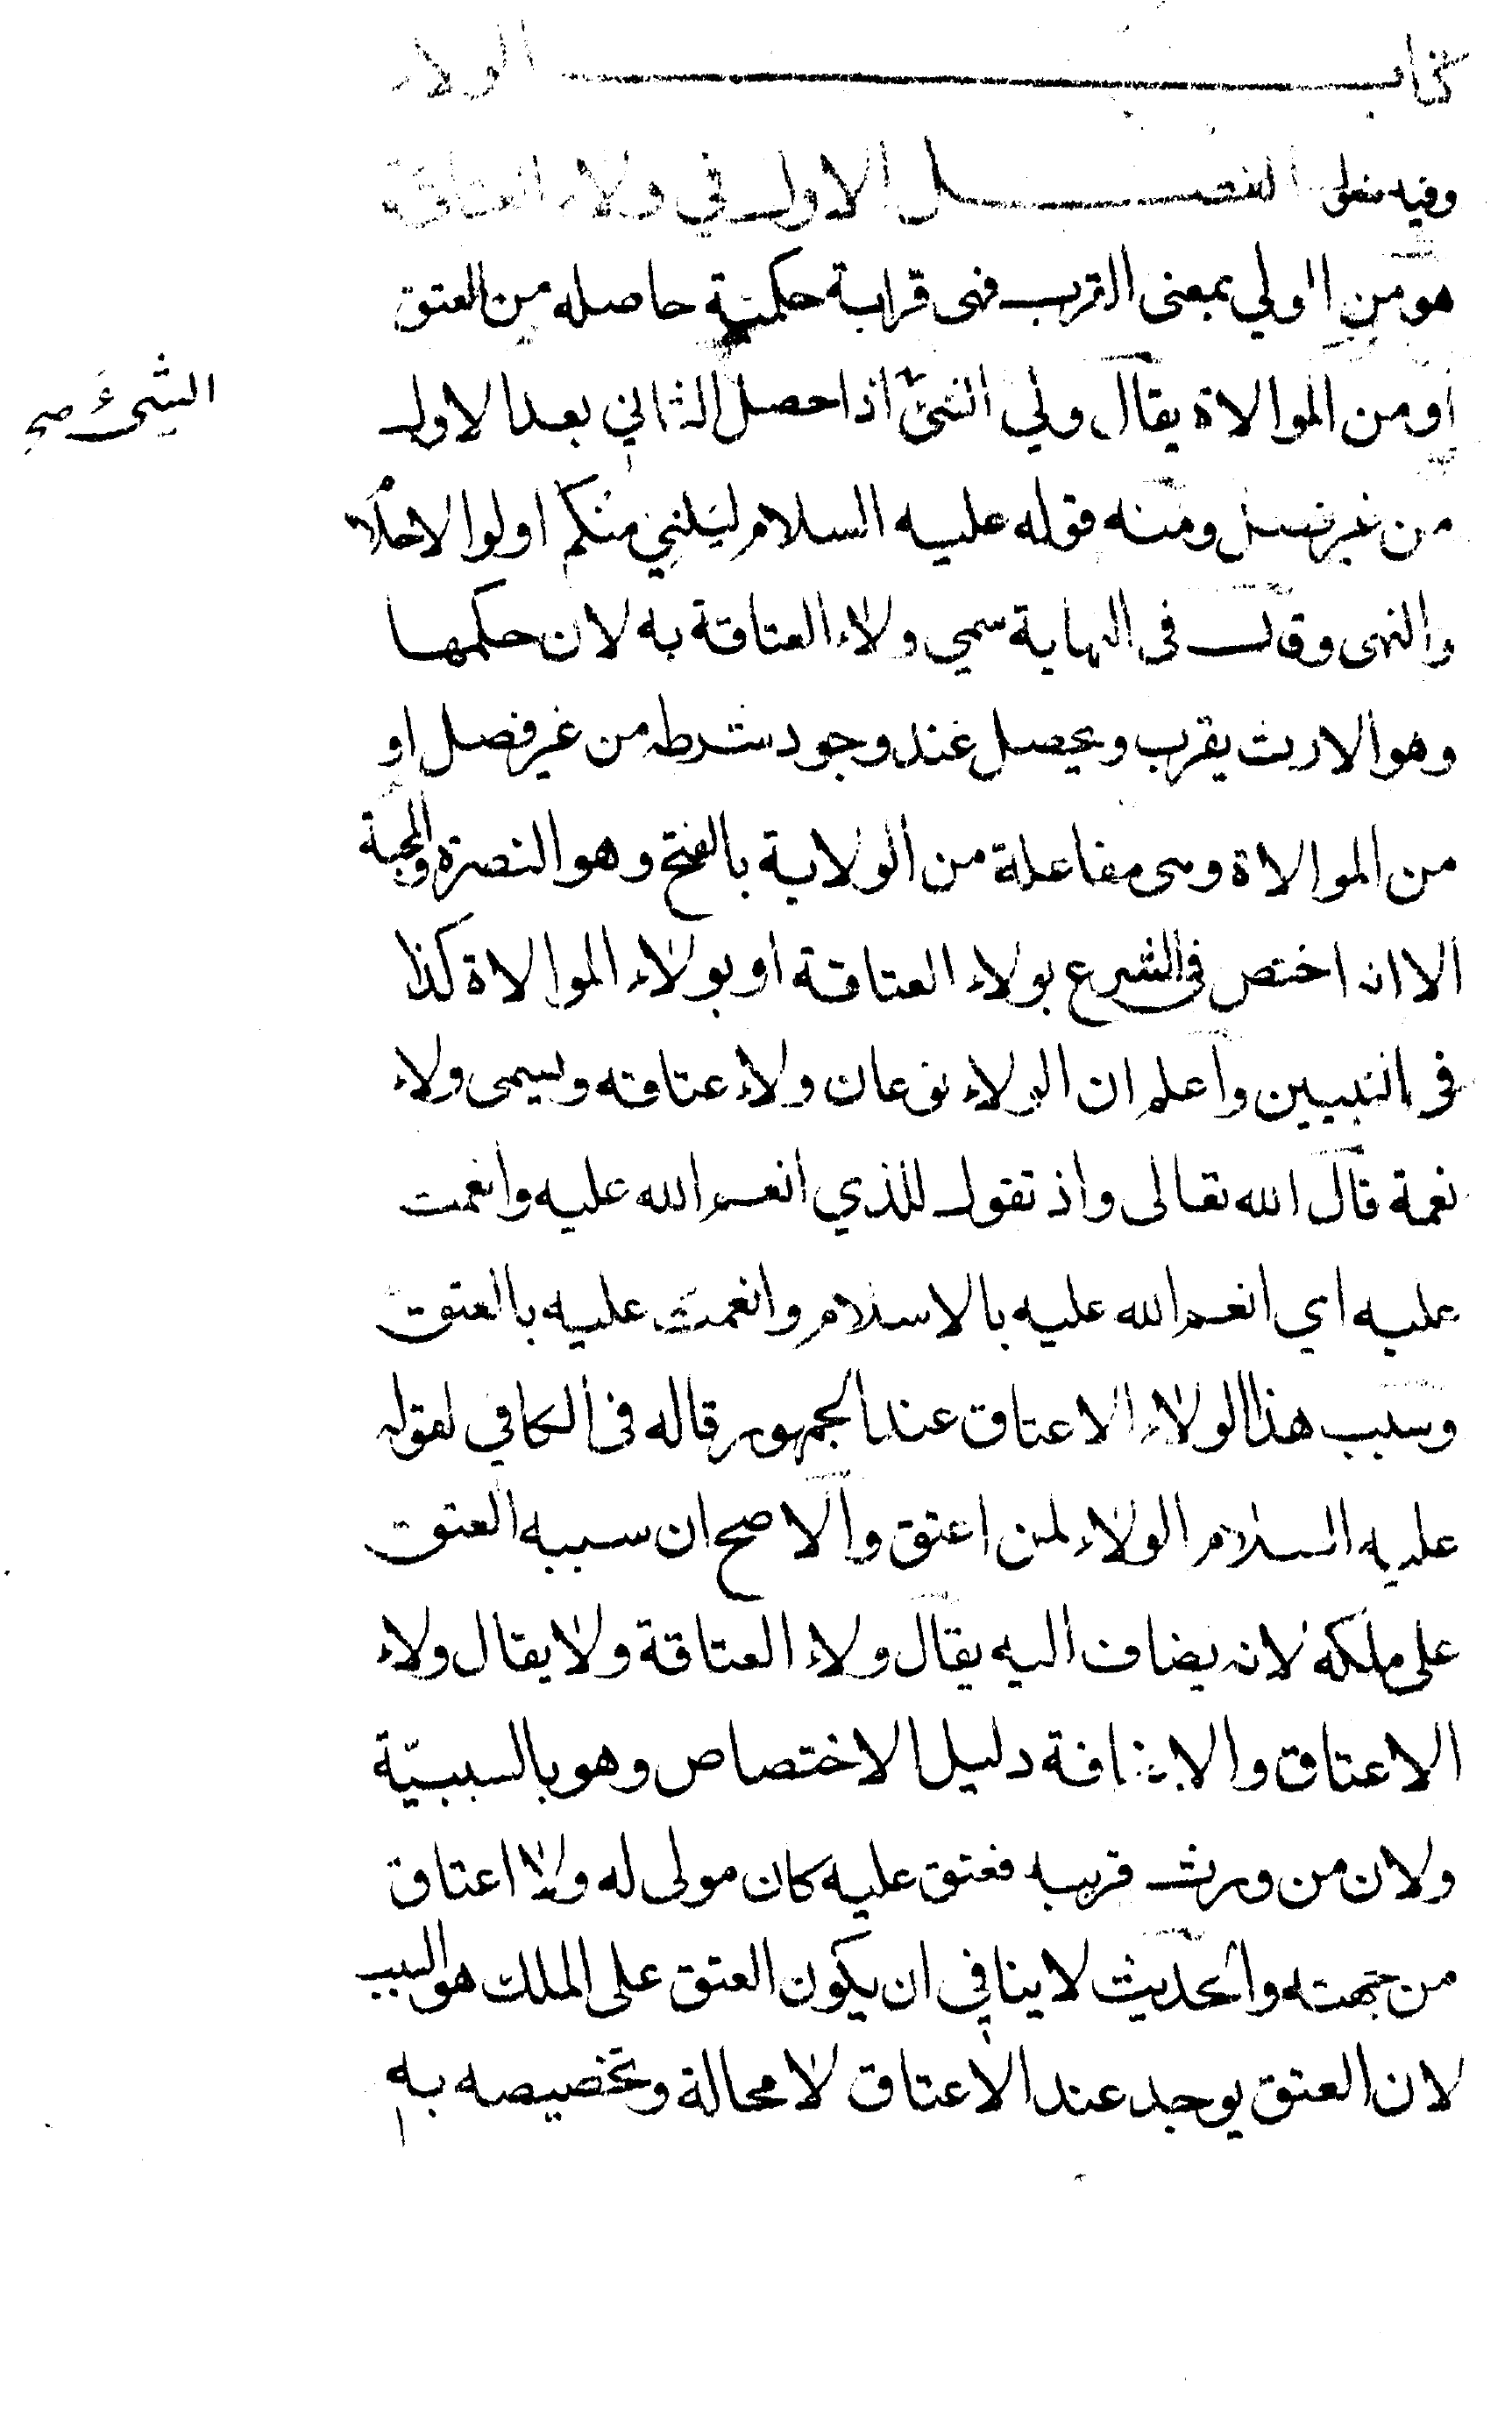 كتاب الولاء
وفيه فصلان الفصل الاول في ولاء العتاقة
هو من الولي بمعنى القرب فهى قرابة حكمية حاصله من العتق
او من الموالاة يقال ولي الشئ اذا حصل الثاني بعد الاول
الشيئ صح
من غير فصل ومنه قوله عليه السلام ليلني منكم اولوا الاحلام
والنهى وقال فى النهاية سمي ولاء العتاقة به لان حكمها
وهو الارث يقرب ويحصل عند وجود شرطه من غير فصل او
من الموالاة وهى مفاعلة من الولاية بالفتح وهو النصرة والمحبة
الا انه اختص فى الشرع بولاء العتاقة او بولاء الموالاة كذا
فى التبيين واعلم ان الولاء نوعان ولاء عتاقه ويسمى ولاء
نعمة قال الله تعالى واذ تقول للذي انعم الله عليه وانعمت
عليه اي انعم الله عليه بالاسلام وانعمت عليه بالعتق
وسبب هذا الولاء الاعتاق عند الجمهور قاله فى الكافي لقوله
عليه السلام الولاء لمن اعتق والاصح ان سببه العتق
على ملكه لانه يضاف اليه يقال ولاء العتاقة ولا يقال ولاء
الاعتاق والاضافة دليل الاختصاص وهو بالسببيّة
ولان من ورث قريبه فعتق عليه كان مولى له ولا اعتاق
من جهته والحديث لا ينافي ان يكون العتق على الملك هو السبب
لان العتق يوجد عند الاعتاق لا محالة وتخصيصه به